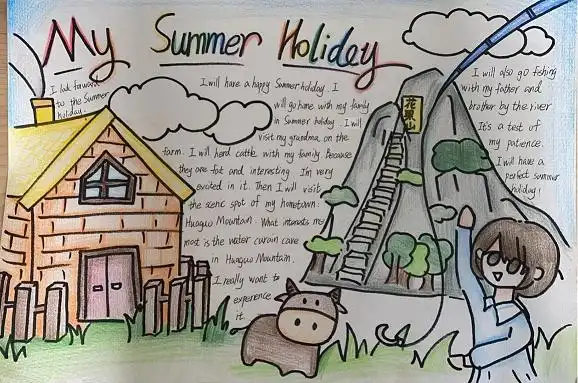 My Summer Holiday
I look forward
to the Summer
holiday!
I will have a happy Summer holiday. I
will go home with my family
in Summer holiday. I will
visit my grandma on the
farm. I will herd cattle with my family because
they are fat and interesting. I'm very
excited in it. Then I will visit
the scenic spot of my hometown:
Huaguo Mountain. What interests me
most is the water curain cave
in Huaguo Mountain.
I really want to
experence
it.
花果山
I will also go fishing
with my father and
brother by the river.
It's a test of
my patience.
I will have a
perfect summer
holiday!